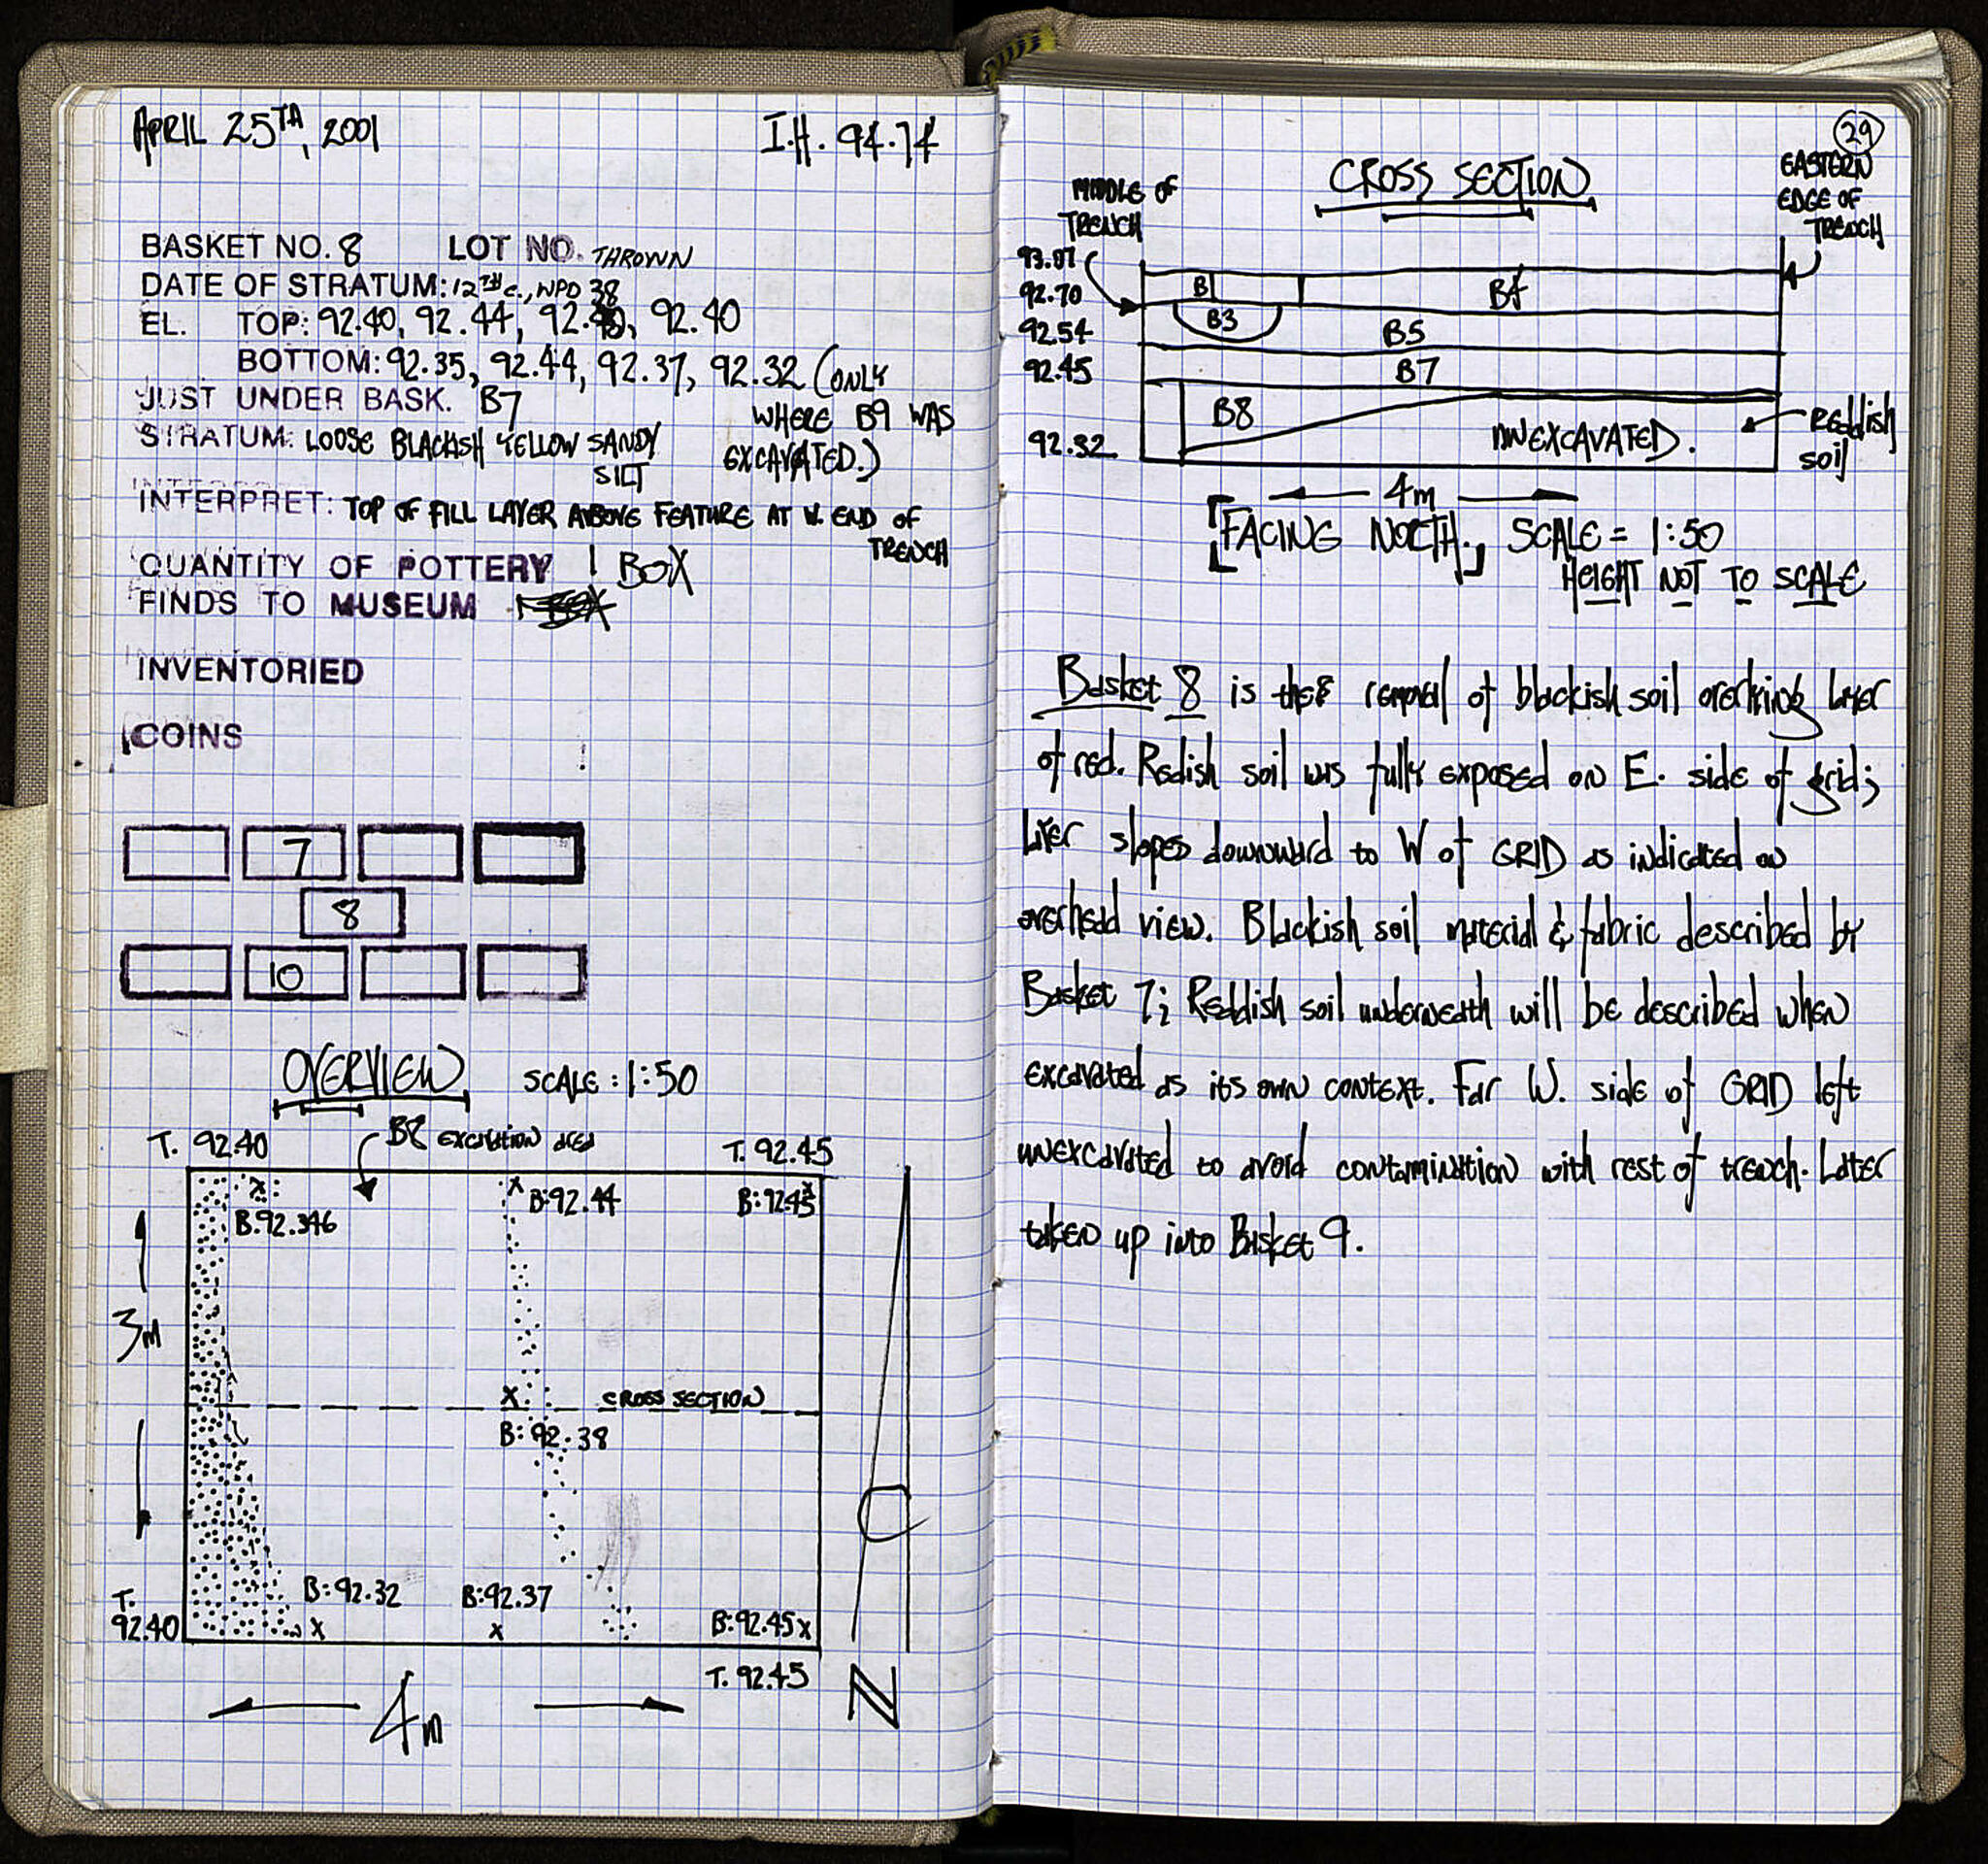 APRIL 25TH, 2001
I.H. 94.74
BASKET NO. 8 LOT NO. THROWN
DATE OF STRATUM: 12TH c., NPD 38
EL. TOP: 92.40, 92.44, 92.40
BOTTOM: 92.35, 92.44, 92.37, 92.32 (ONLY
WHERE B9 WAS
EXCAVATED.)
JUST UNDER BASK. B7
STRATUM: LOOSE BLACKISH YELLOW SANDY
SILT
INTERPRET: TOP OF FILL LAYER ABOVE FEATURE AT W. END OF
TRENCH
QUANTITY OF POTTERY 1 BOX
FINDS TO MUSEUM
INVENTORIED
COINS
7
8
10
OVERVIEW SCALE: 1:50
B8 EXCAVATION AREA
T. 92.40
T. 92.45
B:92.346
B:92.44
B:92.45
3m
CROSS SECTION
B:92.38
B:92.32
B:92.37
B:92.45
T.
92.40
T. 92.45
4m
N
29
CROSS SECTION
MIDDLE OF
TRENCH
EASTERN
EDGE OF
TRENCH
93.07
92.70
92.54
92.45
92.32
B1
B4
B3
B5
B7
B8
UNEXCAVATED.
REddish
soil
4m
[FACING NORTH.] SCALE = 1:50
HEIGHT NOT TO SCALE
Basket 8 is the removal of blackish soil overlying layer
of red. Redish soil was fully exposed on E. side of grid;
layer slopes downward to W of GRID as indicated on
overhead view. Blackish soil material & fabric described by
Basket 7; Reddish soil underneath will be described when
excavated as its own context. Far W. side of GRID left
unexcavated to avoid contamination with rest of trench. Later
taken up into Basket 9.